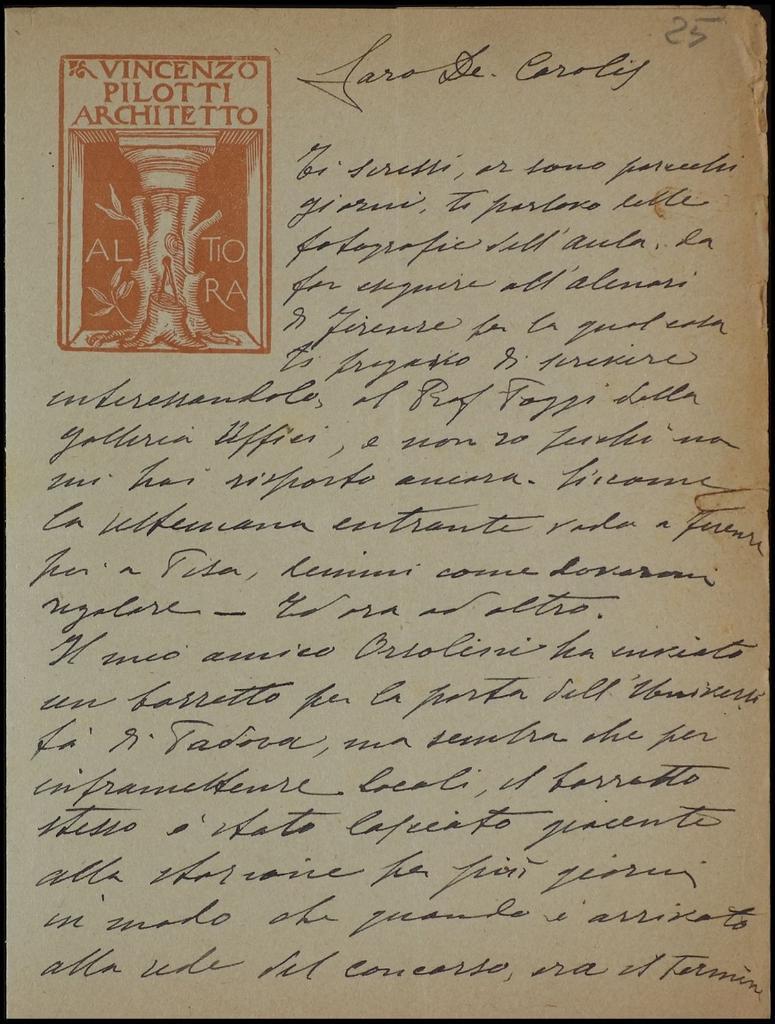 25
VINCENZO
PILOTTI
ARCHITETTO
AL TIO
RA
Caro De. Carolis
Ti scrissi, or sono parecchi
giorni, ti parlavo delle
fotografie dell'aula, da
far eseguire all'alinari
di Firenze per la qual cosa
ti pregavo di scrivere
interessandolo, al Prof Poggi della
Galleria Uffici, e non so perchè non
mi hai risposto ancora. Siccome
la settimana entrante vado a Firenze
poi a Pisa, dimmi come dovermi
regolare — Ed ora ad altro.
Il mio amico Orsolini ha inviato
un bozzetto per la porta dell'Universi
tà di Padova, ma sembra che per
inframettenze locali, il bozzetto
stesso è stato lasciato giacente
alla stazione per più giorni
in modo che quando è arrivato
alla sede del concorso, era il termine